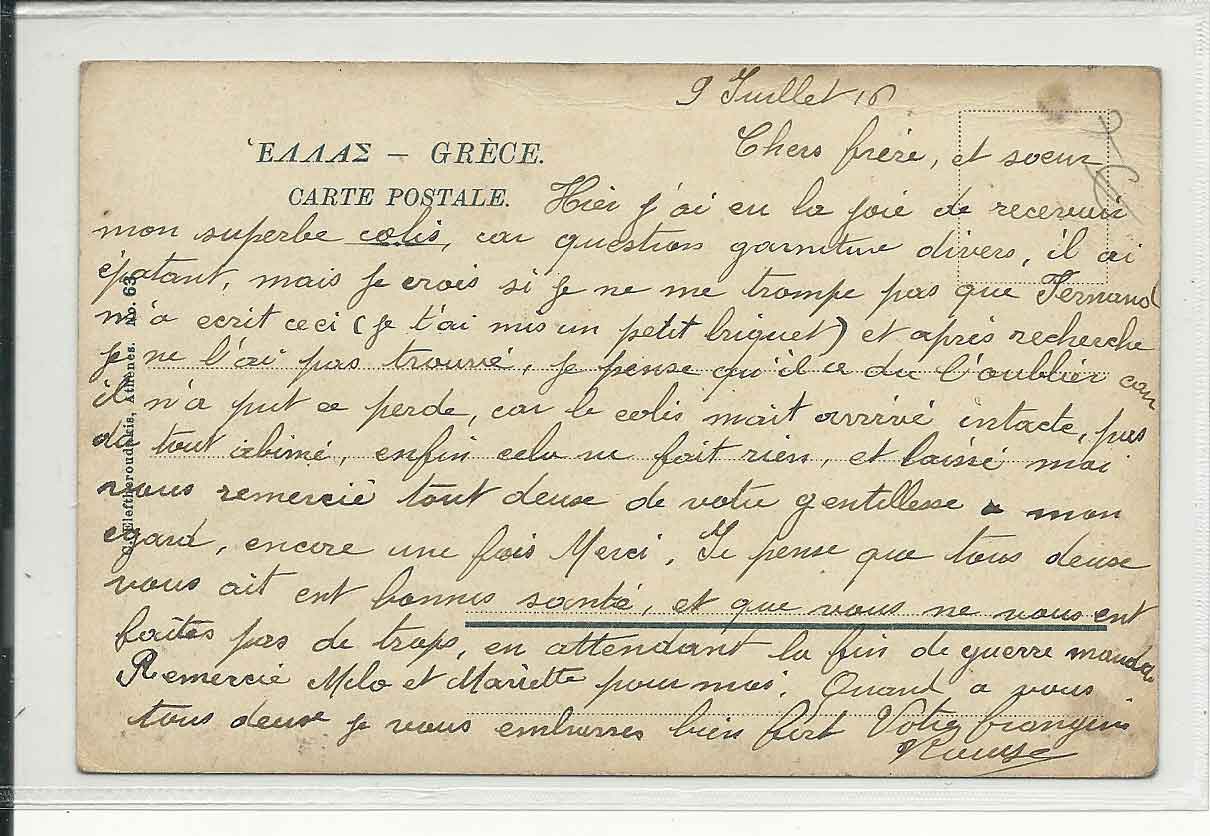 9 Juillet 16
Chers frère, et soeur
ἙΛΛΑΣ – GRÈCE.
CARTE POSTALE.
Hier j'ai eu la joie de recevoir
mon superbe colis, car question garniture divers, il ai
épatant, mais je crois si je ne me trompe pas que Fernand
m'a ecrit ceci (je t'ai mis un petit briquet) et après recherche
je ne l'ai pas trouvé, je pense qu'il a du l'oublier car
il n'a put ce perde, car le colis mait arrivé intacte, pas
du tout abimé, enfin cela ne fait rien, et laissé moi
vous remercié tout deuse de votre gentillesse a mon
egard, encore une fois Merci. Je pense que tous deuse
vous ait ent bonne santé, et que vous ne vous ent
faites pas de trops, en attendant la fin de guerre
Remercié Milo et Mariette pour moi. Quand a vous
tous deuse je vous embrasses bien fort Votre frangin
G. Eleftheroudakis, Athènes. No. 63